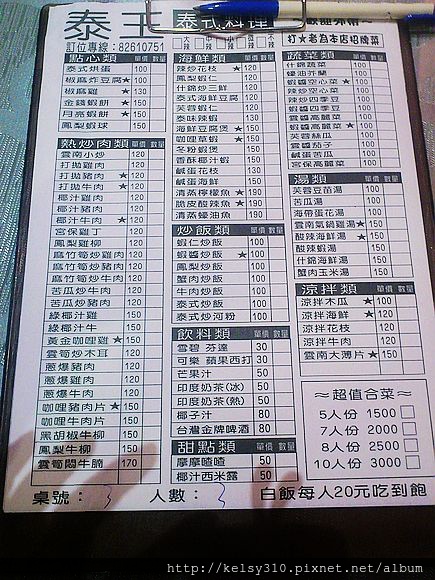 泰王 泰式料理
打★者為本店招牌菜
訂位專線：82610751
大辣 中辣 小辣 微辣 不辣
點心類 單價 數量
泰式烘蛋 100
椒麻炸豆腐★ 100
椒麻雞 ★ 130
金錢蝦餅 ★ 150
月亮蝦餅 ★ 150
鳳梨蝦球 150
熱炒肉類 單價 數量
雲南小炒 120
打拋雞肉 120
打拋豬肉 ★ 120
打拋牛肉 ★ 120
椰汁雞肉 120
椰汁豬肉 120
椰汁牛肉 ★ 120
宮保雞丁 120
鳳梨雞柳 120
麻竹筍炒雞肉 120
麻竹筍炒豬肉 120
麻竹筍炒牛肉 120
苦瓜炒牛肉 120
苦瓜炒豬肉 120
綠椰汁雞 150
綠椰汁牛 150
黃金咖哩雞 ★ 150
雲筍炒木耳 120
蔥爆豬肉 120
蔥爆雞肉 120
蔥爆牛肉 120
咖哩豬肉片★ 150
咖哩牛肉片 150
黑胡椒牛柳 150
鳳梨牛柳 150
雲筍悶牛腩 170
海鮮類 單價 數量
辣炒花枝 ★ 120
鳳梨蝦仁 120
什錦炒三鮮 120
泰式海鮮豆腐 120
芙蓉蝦仁 120
泰味辣蝦 120
海鮮豆腐煲★ 150
咖哩草蝦 ★ 150
冬粉蝦煲 150
香酥椰汁蝦 150
鹹蛋花枝 150
鹹蛋海鮮 150
清蒸檸檬魚★ 190
脆皮酸辣魚★ 190
清蒸蠔油魚 190
炒飯類 單價 數量
蝦仁炒飯 100
蝦醬炒飯 ★ 100
鳳梨炒飯 100
蟹肉炒飯 100
牛肉炒飯 100
泰式炒飯 100
泰式炒河粉 100
飲料類 單價 數量
雪碧 芬達 30
可樂 蘋果西打 30
芒果汁 50
印度奶茶(冰) 50
印度奶茶(熱) 50
椰子汁 80
台灣金牌啤酒 80
甜點類 單價 數量
摩摩喳喳 50
椰汁西米露 50
蔬菜類 單價 數量
什錦蔬菜 100
蠔油芥蘭 100
蝦醬空心菜★ 100
辣炒空心菜 100
辣炒四季豆 100
蝦醬四季豆 100
雲醬高麗菜 100
蝦醬高麗菜★ 100
芙蓉絲瓜 100
雲醬茄子 100
鹹蛋苦瓜 100
宮保高麗菜 100
湯類 單價 數量
芙蓉豆苗湯 100
苦瓜湯 100
海帶蛋花湯 100
雲南氣鍋雞湯★ 150
酸辣海鮮湯 ★ 150
酸辣蝦湯 150
什錦海鮮湯 150
蟹肉玉米湯 150
涼拌類 單價 數量
涼拌木瓜 ★ 100
涼拌海鮮 ★ 120
涼拌花枝 120
涼拌牛肉 120
雲南大薄片★ 150
～超值合菜～
5人份 1500
7人份 2000
8人份 2500
10人份 3000
桌號： 3 人數： 3 白飯每人20元吃到飽
http://kelsy310.pixnet.net/album